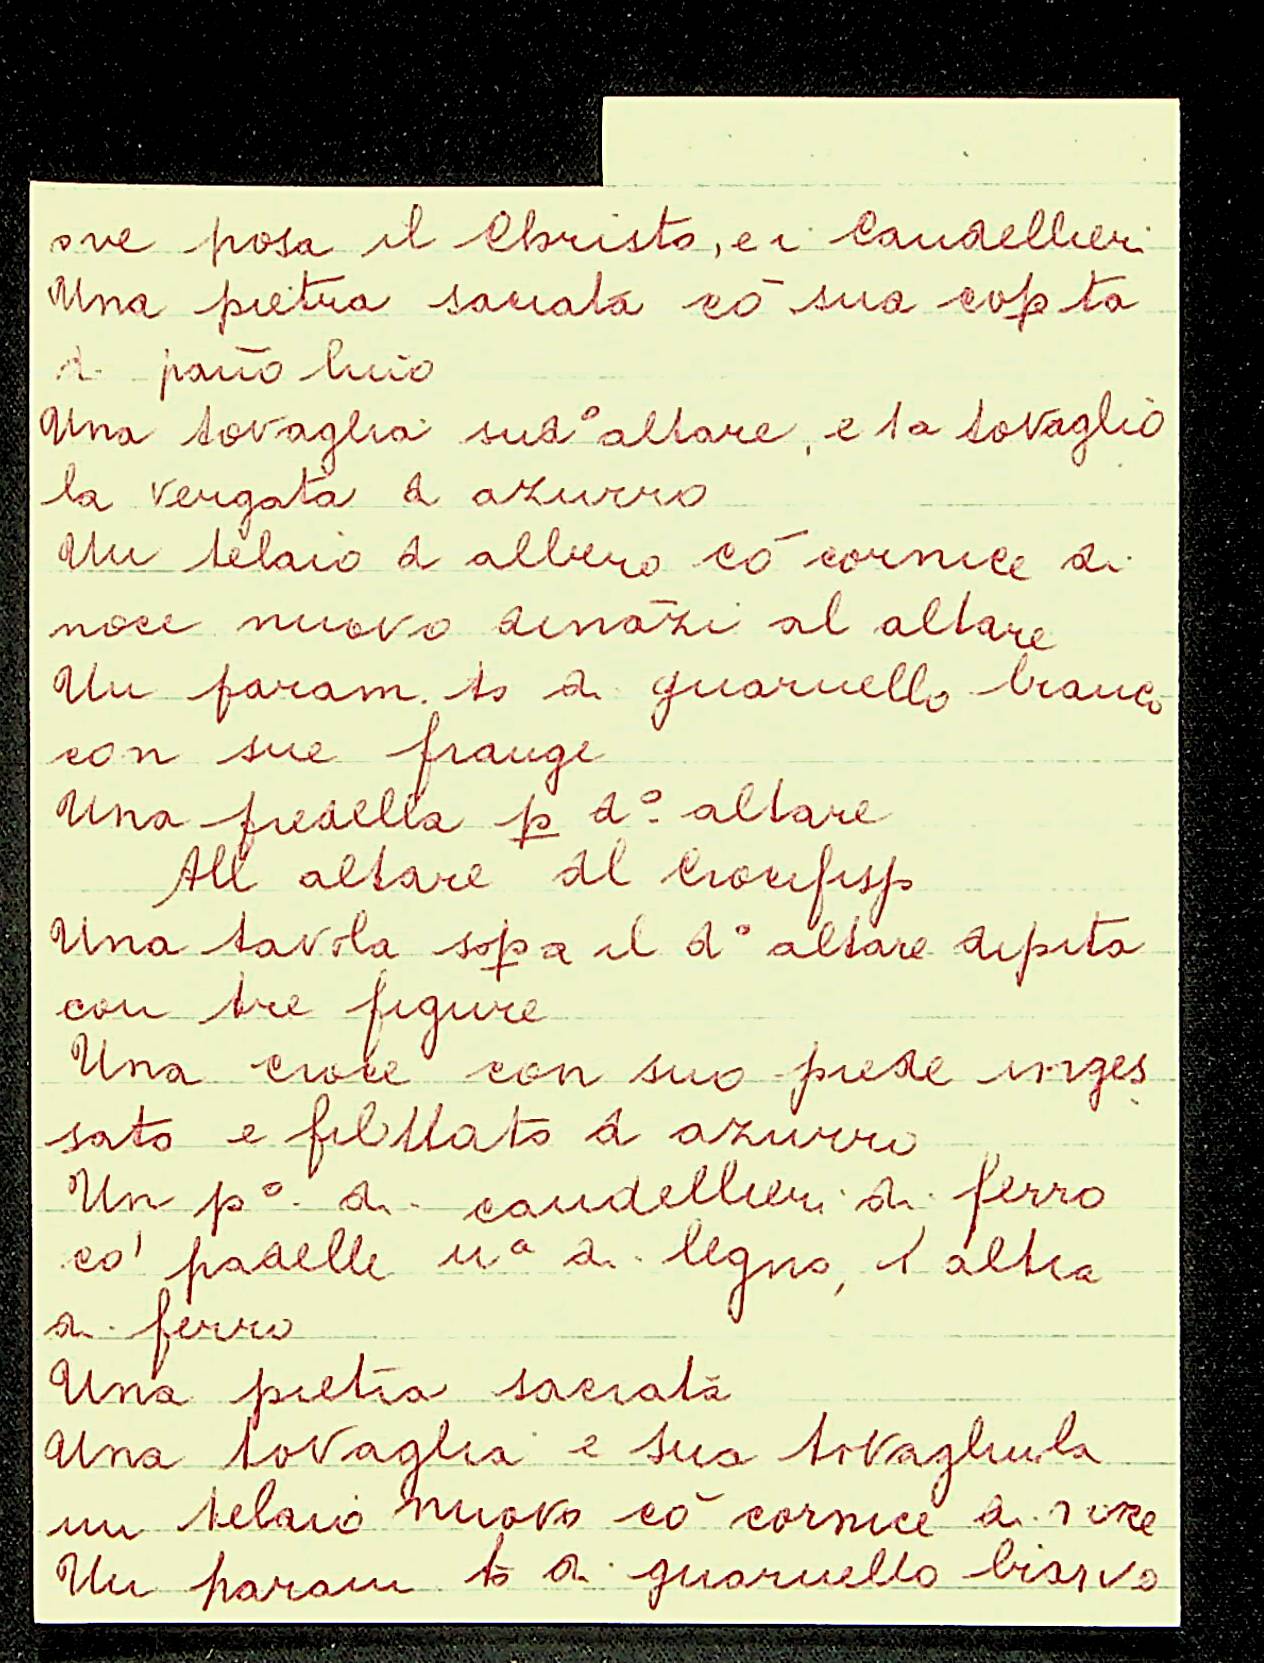 ove posa il Christo, e i Candellieri
Una pietra sacrata cō sua copta
di pano lino
Una tovaglia sud° altare, e 1a tovaglio
la vergata d azurro
Un telaio d albero cō cornice di
noce nuovo dināzi al altare
Un param.to di guarnello bianco
con sue frange
Una predella p d° altare
All altare dl Crocifisso
Una tavola sopa il d° altare dipīta
con tre figure
Una croce con suo piede inges
sato e filettato d azurro
Un p° di candellieri di ferro
cō padelle una di legno, l'altra
di ferro
Una pietra sacrata
Una tovaglia e sua tovagliola
un telaio nuovo cō cornice di noce
Un param to di guarnello bianco